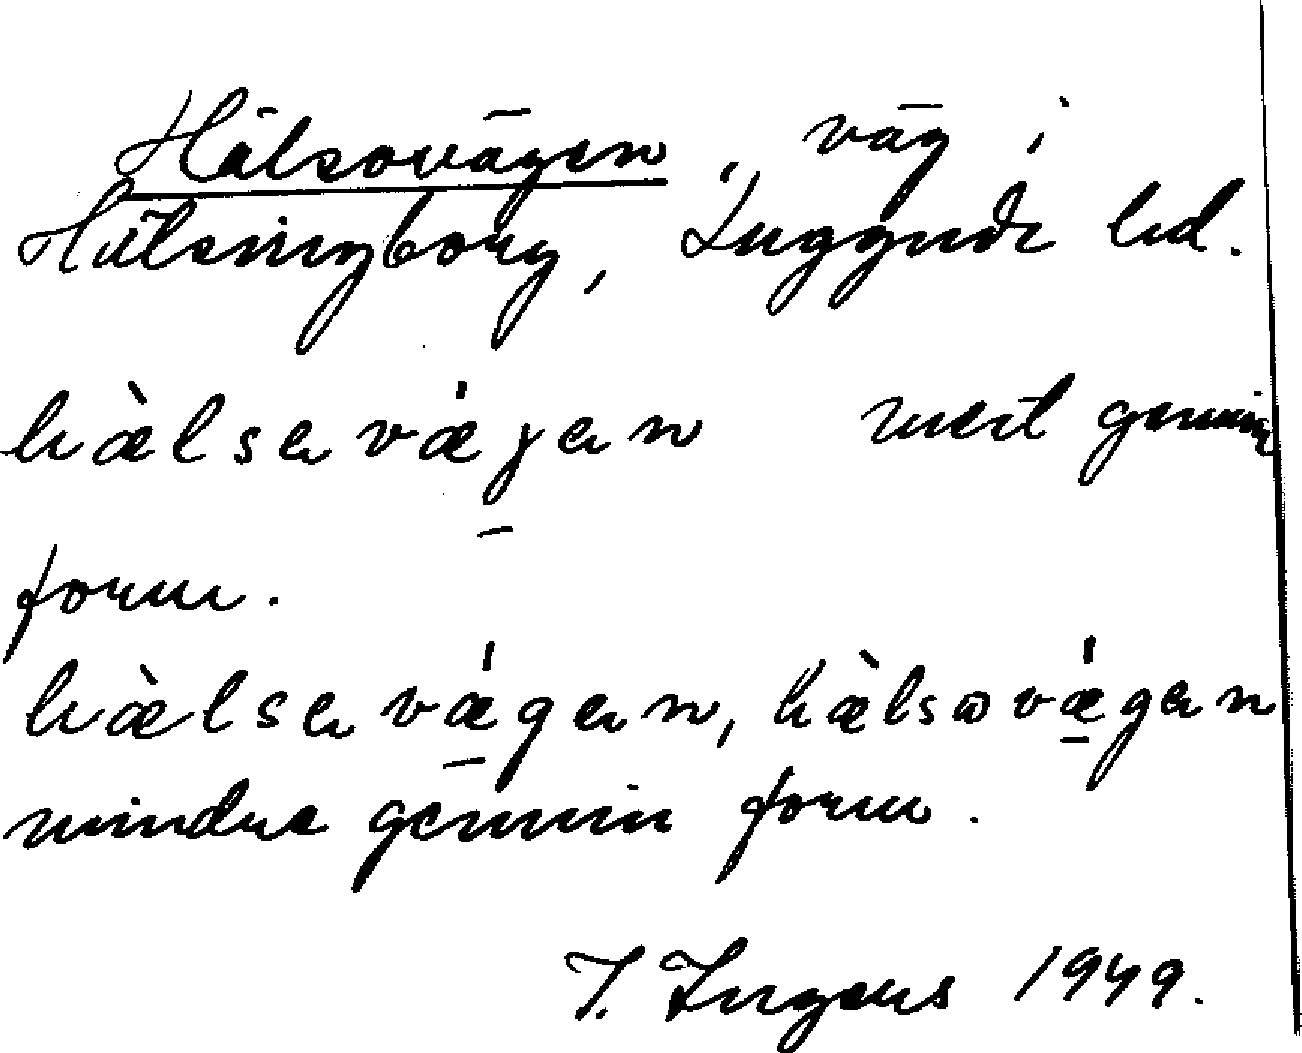 Hälsovägen, väg i
Hälsingborg, Luggude hd.
hæ̀lsavǽɣan mest gemen
form.
hæ̀lsavǽgan, hæ̀lsωvǽgan
mindre gemen form.
I. Ingers 1949.